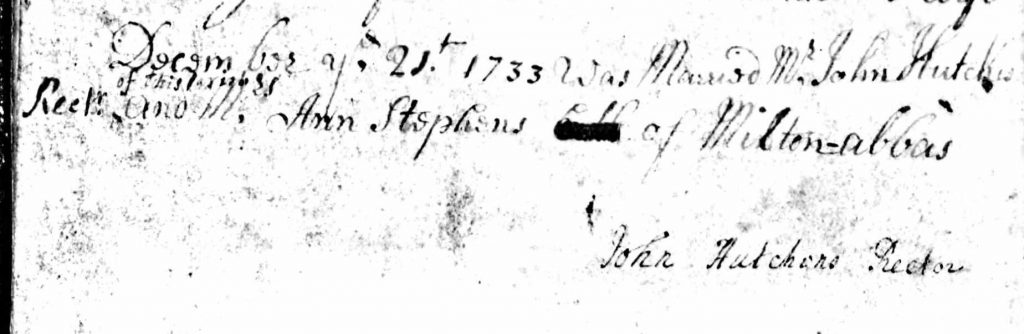 December ye 21t 1733 was Married Mr John Hutchis
of this
Rectr and M. Ann Stephens of Milton=abbas
John Hutchens Rector